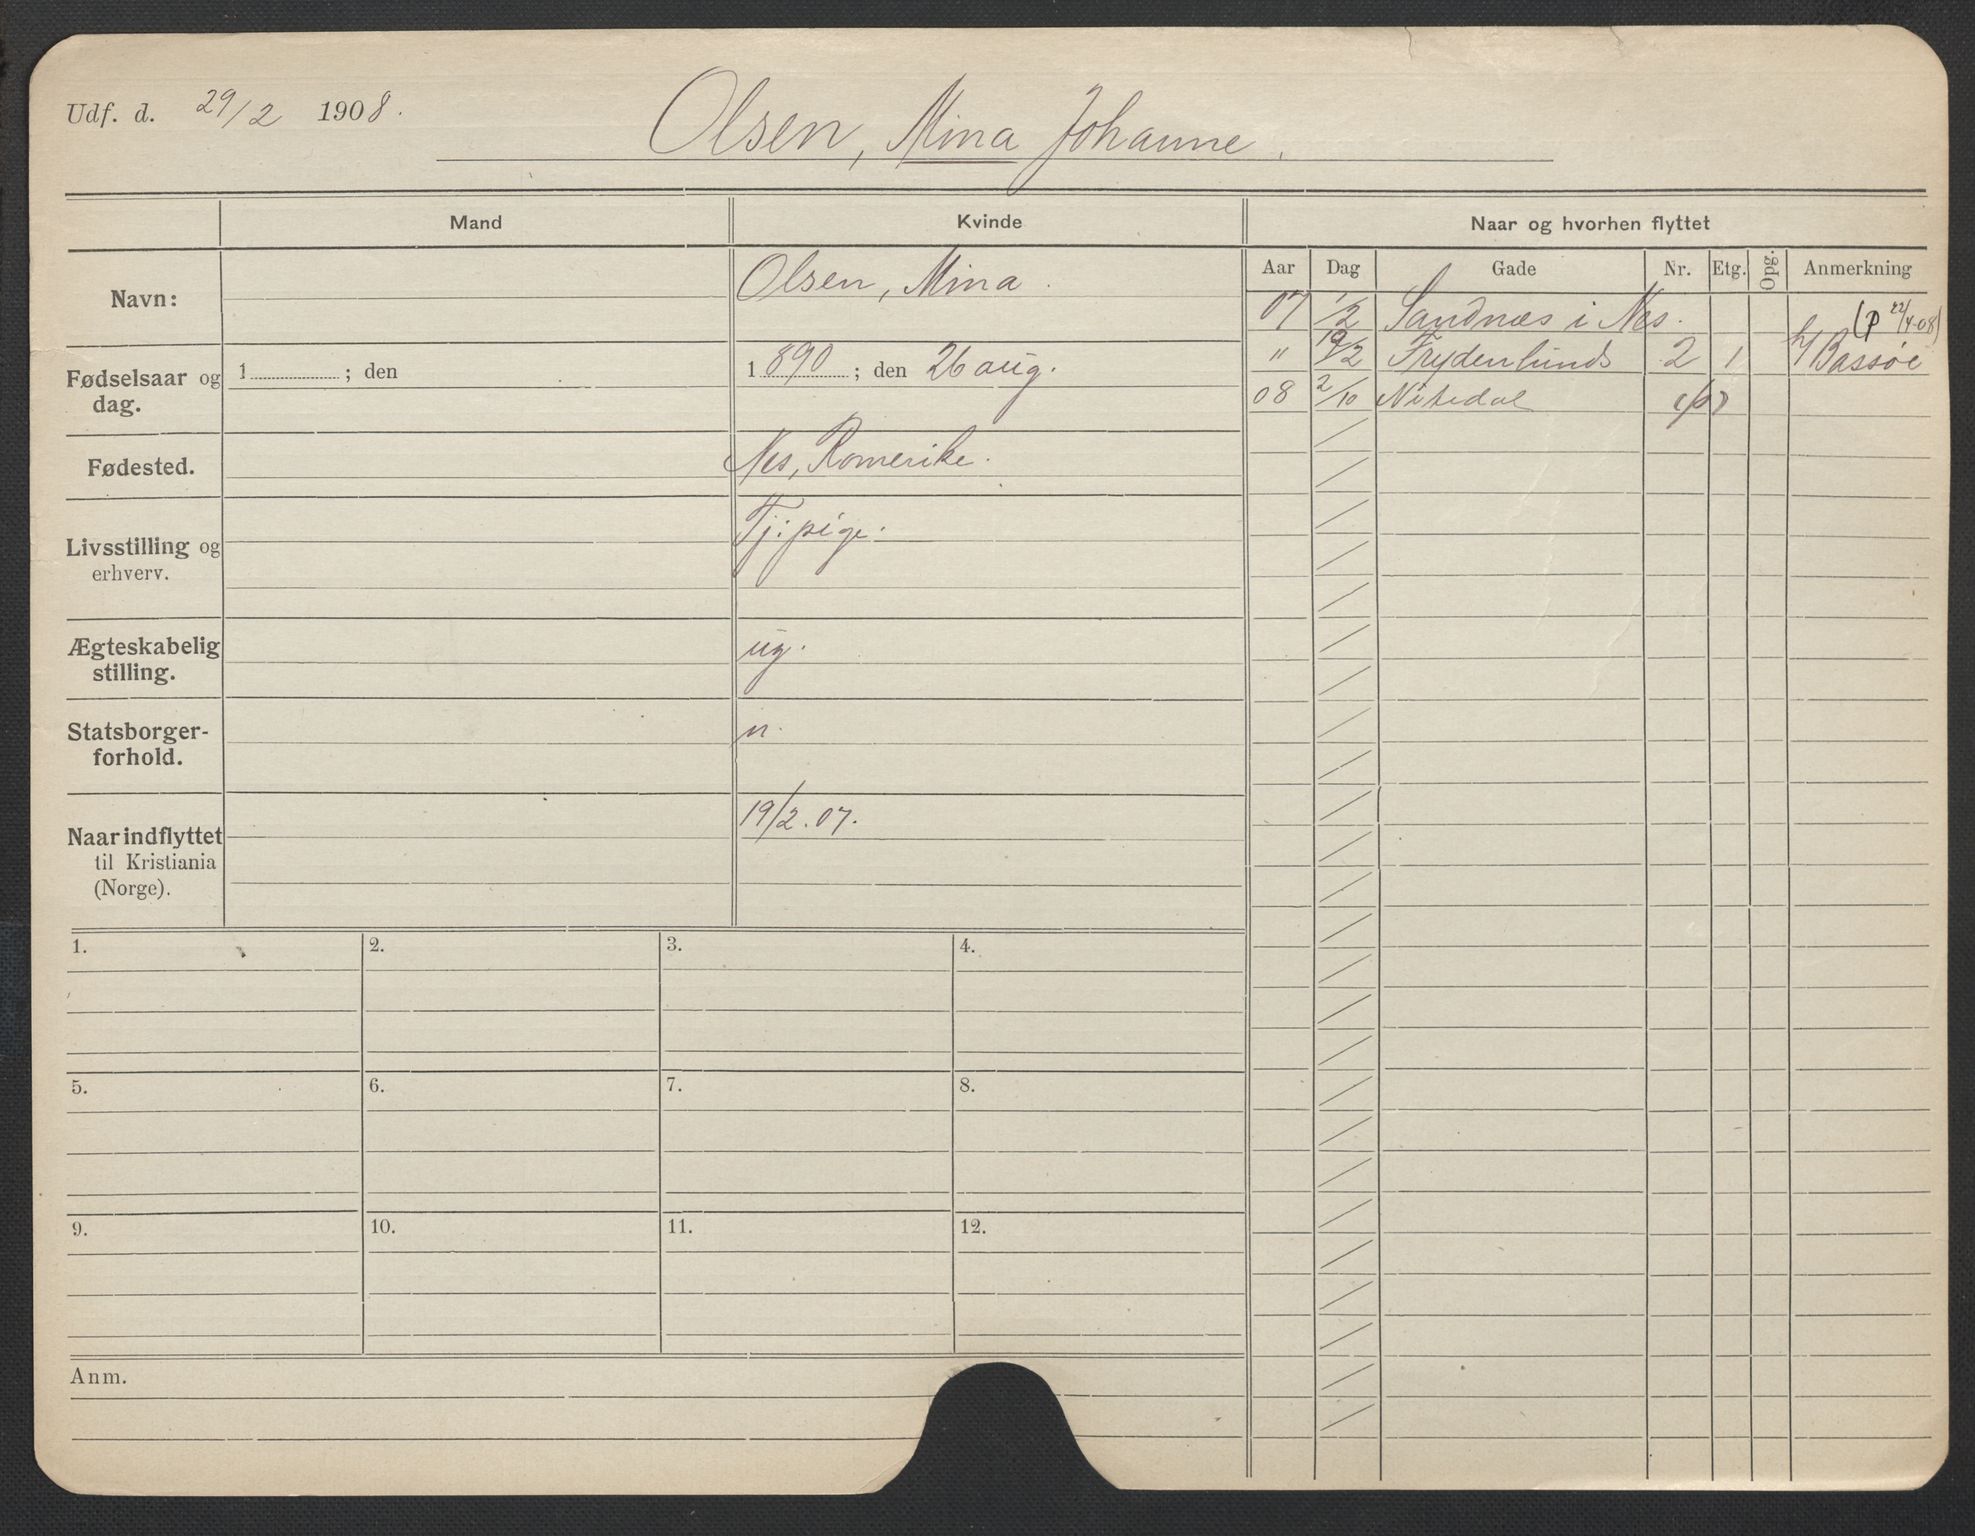 Udf. d. 29/2 1908.
Olsen, Mina Johanne.
Mand
Kvinde
Naar og hvorhen flyttet
Navn:
Olsen, Mina.
Aar Dag Gade Nr. Etg. Opg. Anmerkning
07 1/2 Sandnæs i Nes. (P 22/4-08)
" 19/2 Frydenlunds 2 1 h/Bassøe
08 2/10 Nitedal
Fødselsaar og dag.
1 ; den
1890 ; den 26 aug.
Fødested.
Nes, Romerike.
Livsstilling og
erhverv.
Tj: pige.
Ægteskabelig
stilling.
ug.
Statsborger-
forhold.
n.
Naar indflyttet
til Kristiania
(Norge).
19/2. 07.
1. 2. 3. 4.
5. 6. 7. 8.
9. 10. 11. 12.
Anm.